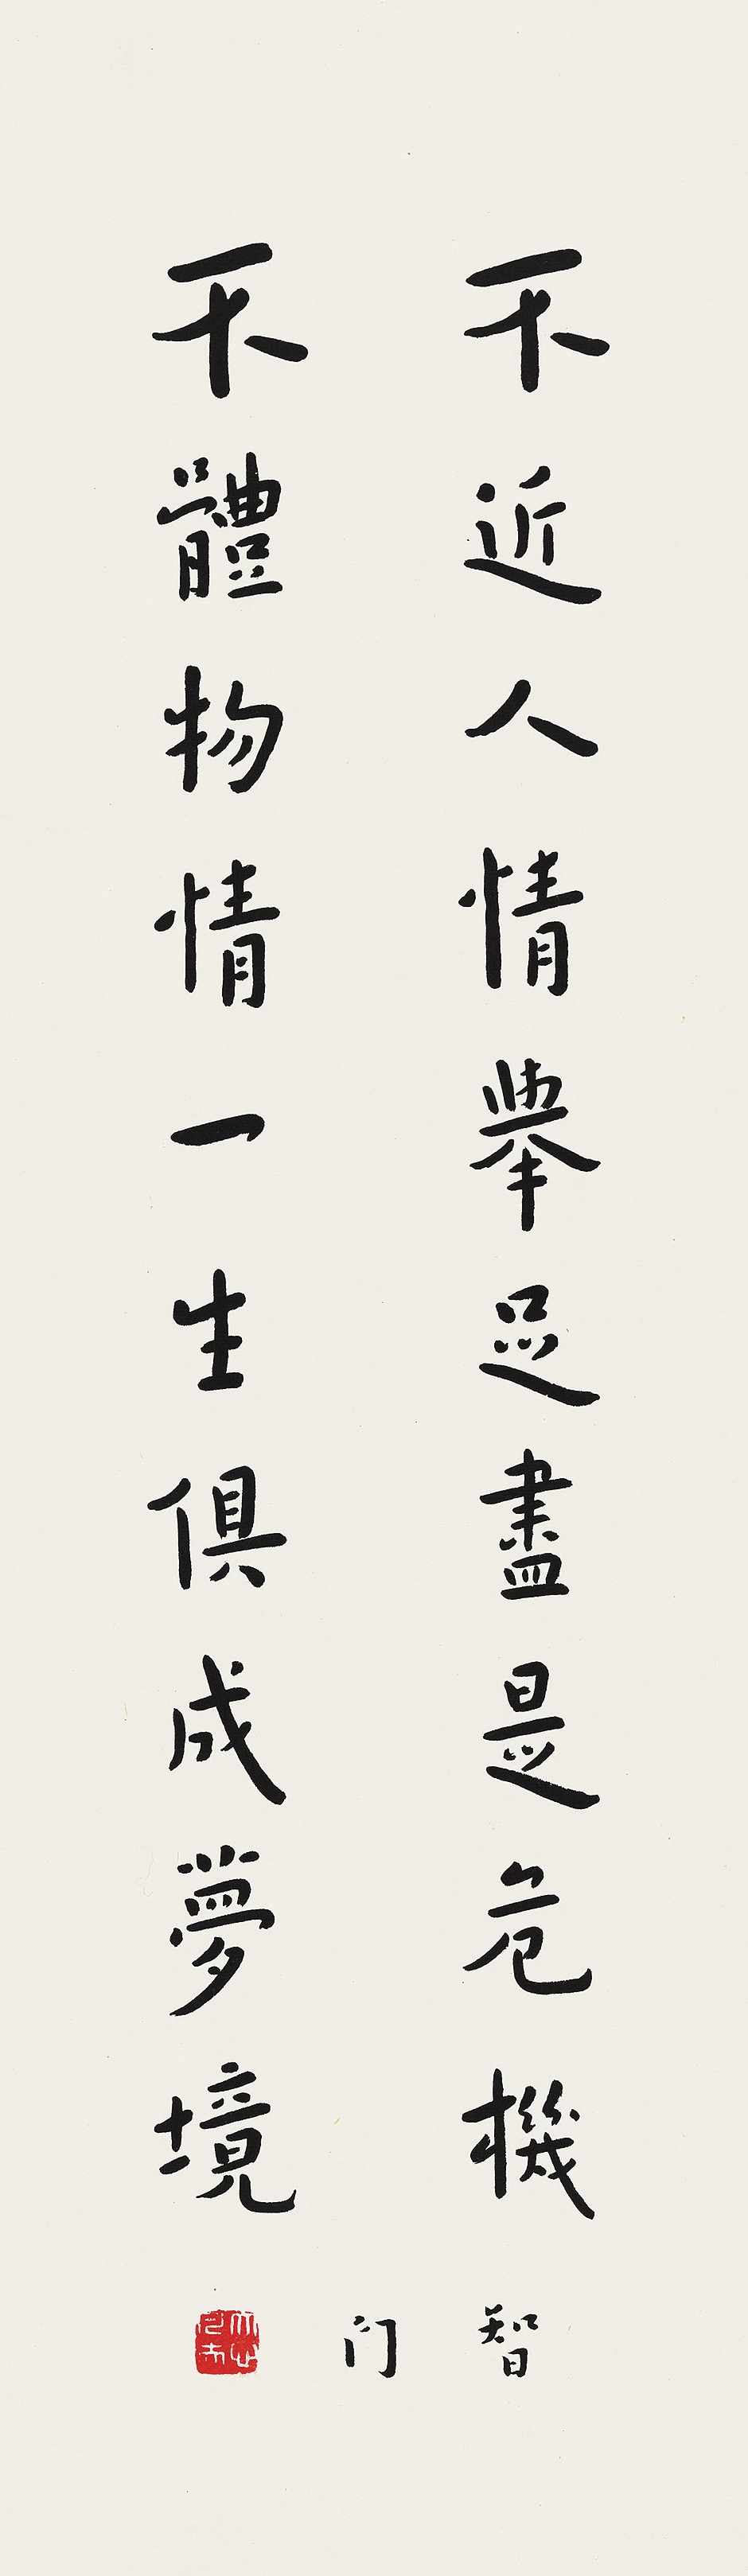 不近人情舉足盡是危機
不體物情一生俱成夢境
智门